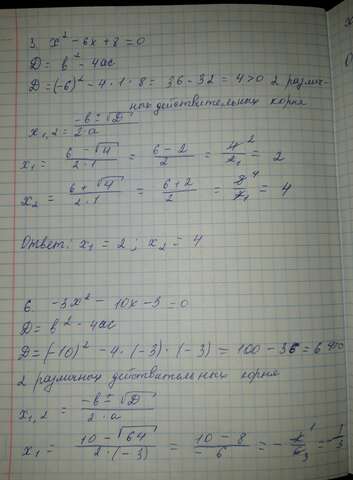 3. x² - 6x + 8 = 0
D = b² - 4ac
D = (-6)² - 4 · 1 · 8 = 36 - 32 = 4 > 0 2 различ-
ных действительных корня
x₁,₂ = (-b ± √D) / (2 · a)
x₁ = (6 - √4) / (2 · 1) = (6 - 2) / 2 = 4/2 = 2
x₂ = (6 + √4) / (2 · 1) = (6 + 2) / 2 = 8/2 = 4
Ответ: x₁ = 2 ; x₂ = 4
6. -3x² - 10x - 3 = 0
D = b² - 4ac
D = (-10)² - 4 · (-3) · (-3) = 100 - 36 = 64 > 0
2 различных действительных корня
x₁,₂ = (-b ± √D) / (2 · a)
x₁ = (10 - √64) / (2 · (-3)) = (10 - 8) / -6 = - 2/6 = - 1/3